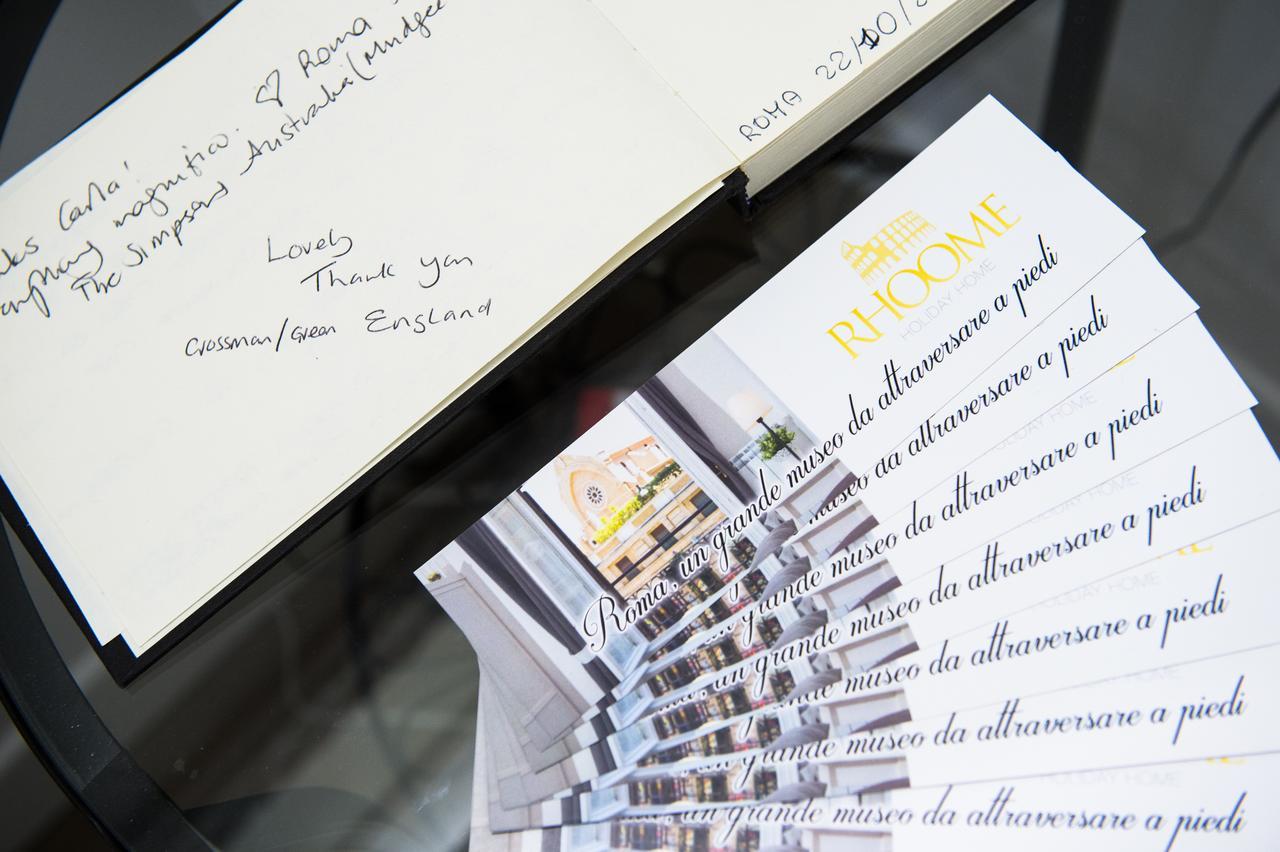 ♡ Roma
Carla!
magnifico.
The Simpsons Australia (Mudgee
Lovely
Thank you
Crossman/Green England
ROMA 22/10/2
RHOOME
HOLIDAY HOME
Roma, un grande museo da attraversare a piedi
museo da attraversare a piedi
HOLIDAY HOME
un grande museo da attraversare a piedi
HOLIDAY HOME
un grande museo da attraversare a piedi
HOLIDAY HOME
grande museo da attraversare a piedi
HOLIDAY HOME
un grande museo da attraversare a piedi
HOLIDAY HOME
un grande museo da attraversare a piedi